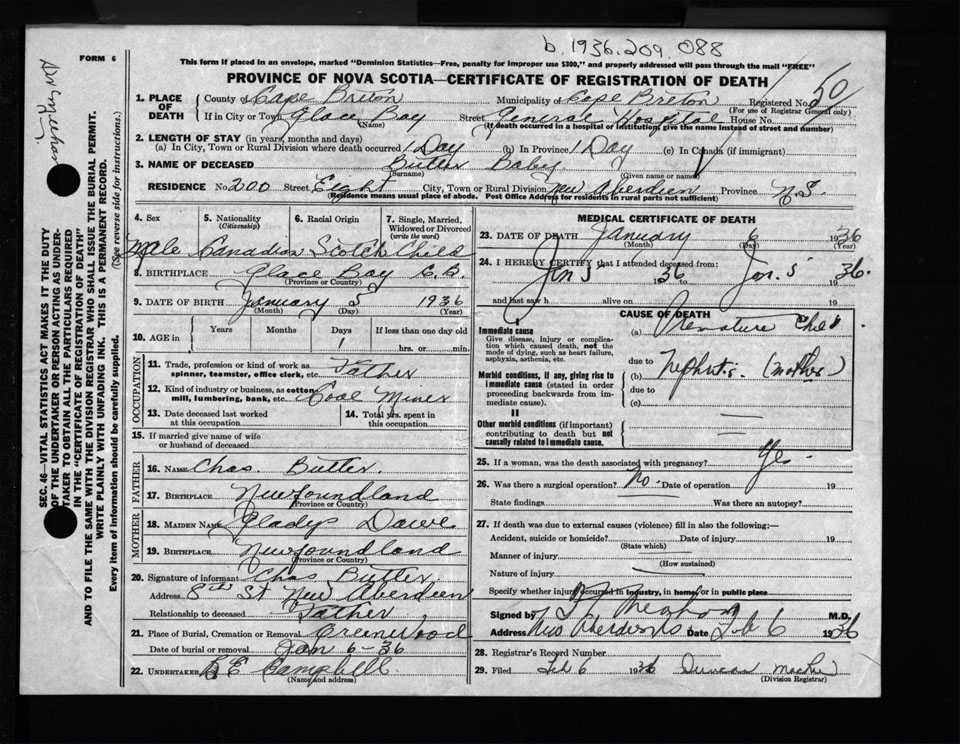 b. 1936. 209. 088
FORM 6
This form if placed in an envelope, marked "Dominion Statistics—Free, penalty for improper use $300," and properly addressed will pass through the mail "FREE"
PROVINCE OF NOVA SCOTIA—CERTIFICATE OF REGISTRATION OF DEATH
1. PLACE OF DEATH County of Cape Breton Municipality of Cape Breton Registered No. 50
(For use of Registrar General only)
If in City or Town Glace Bay Street General Hospital House No.
(Name) (If death occurred in a hospital or institution, give the name instead of street and number)
2. LENGTH OF STAY (in years, months and days)
(a) In City, Town or Rural Division where death occurred 1 Day (b) In Province 1 Day (c) In Canada (if immigrant)
3. NAME OF DECEASED Butler Baby
(Surname) (Given name or names)
RESIDENCE No. 200 Street Eight City, Town or Rural Division New Aberdeen Province N.S
(Residence means usual place of abode. Post Office Address for residents in rural parts not sufficient)
4. Sex 5. Nationality (Citizenship) 6. Racial Origin 7. Single, Married, Widowed or Divorced (write the word)
Male Canadian Scotch Child
8. BIRTHPLACE Glace Bay C.B.
(Province or Country)
9. DATE OF BIRTH January 5 1936
(Month) (Day) (Year)
10. AGE in Years Months Days If less than one day old
1 hrs. or min.
OCCUPATION
11. Trade, profession or kind of work as spinner, teamster, office clerk, etc. Father
12. Kind of industry or business, as cotton mill, lumbering, bank, etc. Coal Miner
13. Date deceased last worked at this occupation 14. Total yrs. spent in this occupation
15. If married give name of wife or husband of deceased
FATHER
16. NAME Chas. Butler.
17. BIRTHPLACE Newfoundland
(Province or Country)
MOTHER
18. MAIDEN NAME Gladys Dawe
19. BIRTHPLACE Newfoundland
(Province or Country)
20. Signature of informant Chas Butler
Address 8th St New Aberdeen
Relationship to deceased Father
21. Place of Burial, Cremation or Removal Greenwood
Date of burial or removal Jan 6-36
22. UNDERTAKER R E Campbell
(Name and address)
MEDICAL CERTIFICATE OF DEATH
23. DATE OF DEATH January 6 1936
(Month) (Day) (Year)
24. I HEREBY CERTIFY that I attended deceased from:
Jan 5 1936 to Jan. 5 1936.
and last saw h alive on 19
CAUSE OF DEATH
Immediate cause
Give disease, injury or complication which caused death, not the mode of dying, such as heart failure, asphyxia, asthenia, etc.
(a) Premature Child
due to
Morbid conditions, if any, giving rise to immediate cause (stated in order proceeding backwards from immediate cause).
(b) Nephritis (mother)
due to
(c)
II
Other morbid conditions (if important) contributing to death but not causally related to immediate cause.
25. If a woman, was the death associated with pregnancy?
26. Was there a surgical operation? No. Date of operation 19
State findings Was there an autopsy?
27. If death was due to external causes (violence) fill in also the following:—
Accident, suicide or homicide? Date of injury 19
(State which)
Manner of injury
(How sustained)
Nature of injury
Specify whether injury occurred in industry, in home, or in public place
Signed by M.D.
Address New Aberdeen NS Date Feb 6 1936
28. Registrar's Record Number
29. Filed Feb 6 1936 Duncan
(Division Registrar)
SEC. 46—VITAL STATISTICS ACT MAKES IT THE DUTY
OF THE UNDERTAKER OR PERSON ACTING AS UNDER-
TAKER TO OBTAIN ALL THE PARTICULARS REQUIRED
IN THE "CERTIFICATE OF REGISTRATION OF DEATH"
AND TO FILE THE SAME WITH THE DIVISION REGISTRAR WHO SHALL ISSUE THE BURIAL PERMIT.
WRITE PLAINLY WITH UNFADING INK. THIS IS A PERMANENT RECORD.
Every item of information should be carefully supplied. (See reverse side for instructions.)